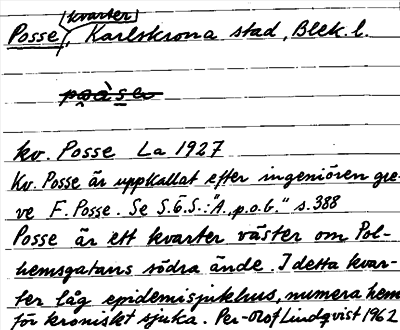 kvarter
Posse, Karlskrona stad, Blek. l.
kv. Posse La 1927
Kv. Posse är uppkallat efter ingeniören gre-
ve F. Posse. Se S.Ö.S.: "A. p. o. b." s. 388
Posse är ett kvarter väster om Pol-
hemsgatans södra ände. I detta kvar-
ter låg epidemisjukhus, numera hem
för kroniskt sjuka. Per-Olof Lindqvist 1962